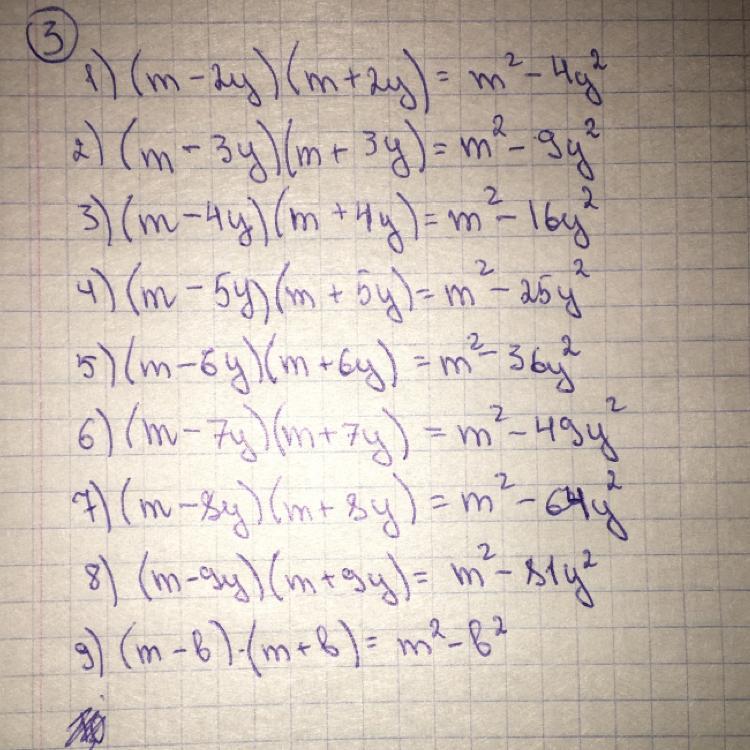 3
1) (m - 2y)(m + 2y) = m² - 4y²
2) (m - 3y)(m + 3y) = m² - 9y²
3) (m - 4y)(m + 4y) = m² - 16y²
4) (m - 5y)(m + 5y) = m² - 25y²
5) (m - 6y)(m + 6y) = m² - 36y²
6) (m - 7y)(m + 7y) = m² - 49y²
7) (m - 8y)(m + 8y) = m² - 64y²
8) (m - 9y)(m + 9y) = m² - 81y²
9) (m - b)·(m + b) = m² - b²